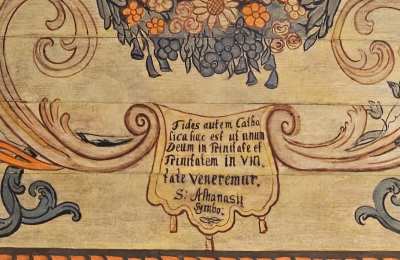 Fides autem Catho
lica haec est ut unum
Deum in Trinitate et
Trinitatem in Vni
tate Veneremur.
S: Athanasii
Symbo.